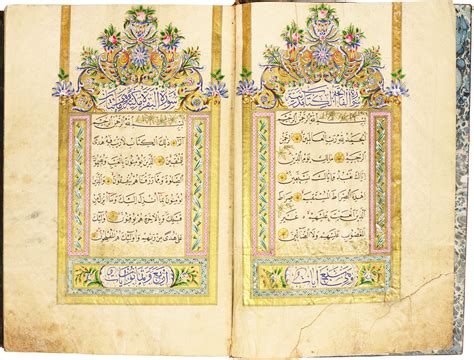 سورة الفاتحة الكتاب
بسم الله الرحمن الرحيم
الحمد لله رب العالمين الرحمن
الرحيم مالك يوم الدين اياك
نعبد واياك نستعين
اهدنا الصراط المستقيم
صراط الذين انعمت عليهم غير
المغضوب عليهم ولا الضالين
وهي سبع ايات
سورة البقرة
بسم الله الرحمن الرحيم
الم ذلك الكتاب لا ريب فيه هدى
للمتقين الذين يؤمنون بالغيب ويقيمون
الصلوة ومما رزقناهم ينفقون والذين
يؤمنون بما انزل اليك وما انزل من
قبلك وبالاخرة هم يوقنون اولئك
على هدى من ربهم واولئك هم المفلحون